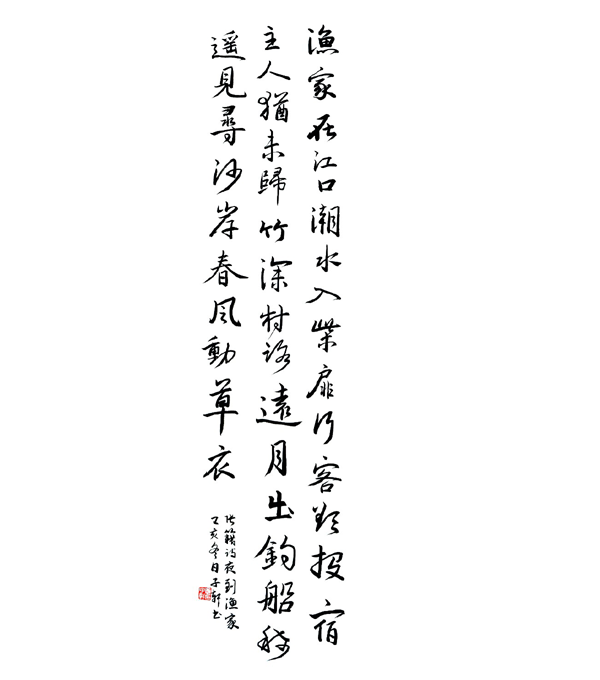 漁家在江口潮水入柴扉行客欲投宿
主人猶未歸竹深村路遠月出釣船稀
遥見尋沙岸春風動草衣
張籍詩夜到漁家
乙亥冬日子軒书